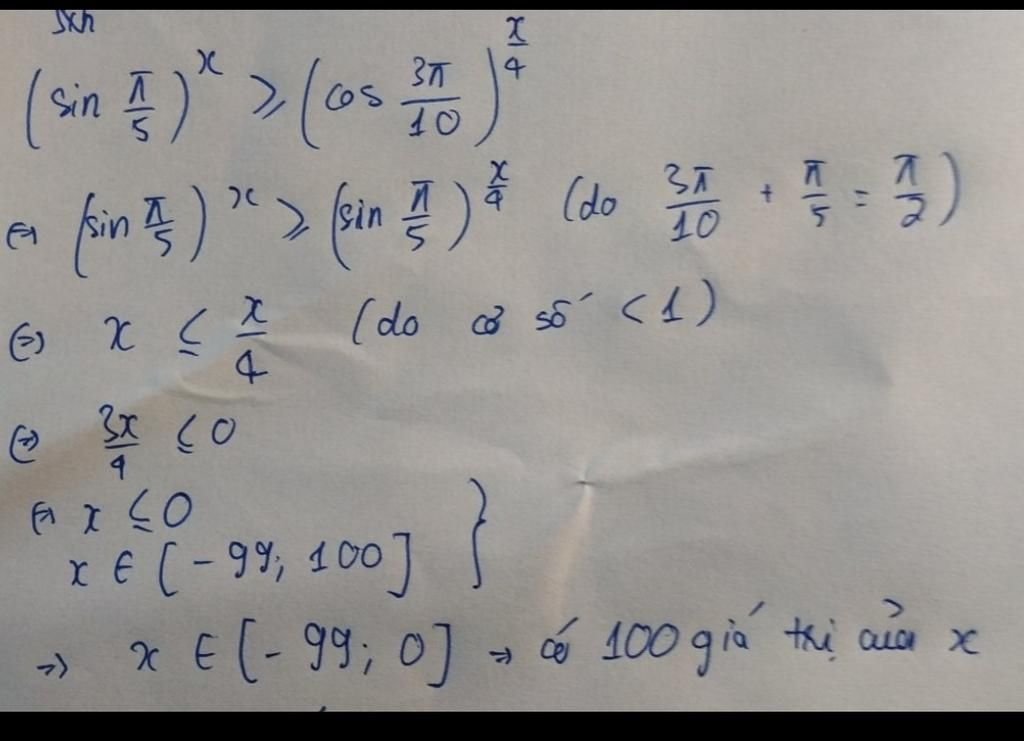 (sin π/5)^x ≥ (cos 3π/10)^(x/4)
⇔ (sin π/5)^x ≥ (sin π/5)^(x/4) (do 3π/10 + π/5 = π/2)
⇔ x ≤ x/4 (do cơ số < 1)
⇔ 3x/4 ≤ 0
⇔ x ≤ 0 }
x ∈ [-99; 100]
⇒ x ∈ [-99; 0] → có 100 giá trị của x